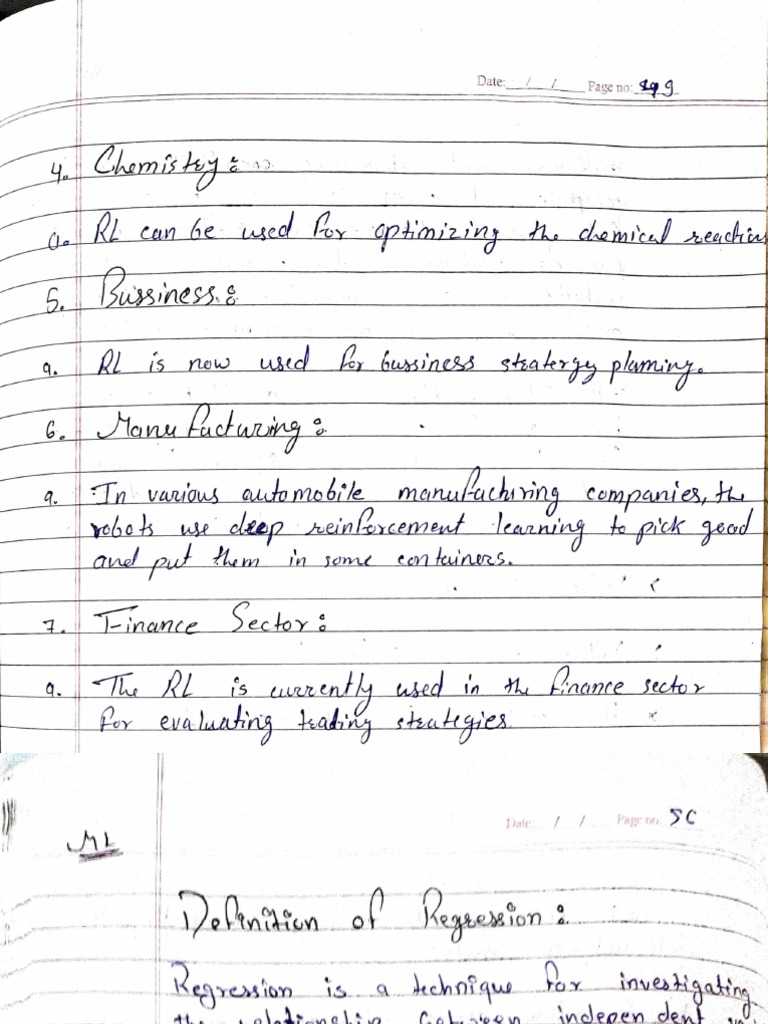 Date: / / Page no:
4. Chemistry :
a. RL can be used for optimizing the chemical reaction
5. Bussiness :
a. RL is now used for bussiness steatergy planning.
6. Manufacturing :
a. In various automobile manufacturing companies, the
robots use deep reinforcement learning to pick good
and put them in some containers.
7. Finance Sector :
a. The RL is currently used in the finance sector
for evaluating trading strategies.
Date / / Page no.
ML
Definition of Regression :
Regression is a technique for investigating
the relationship between independent